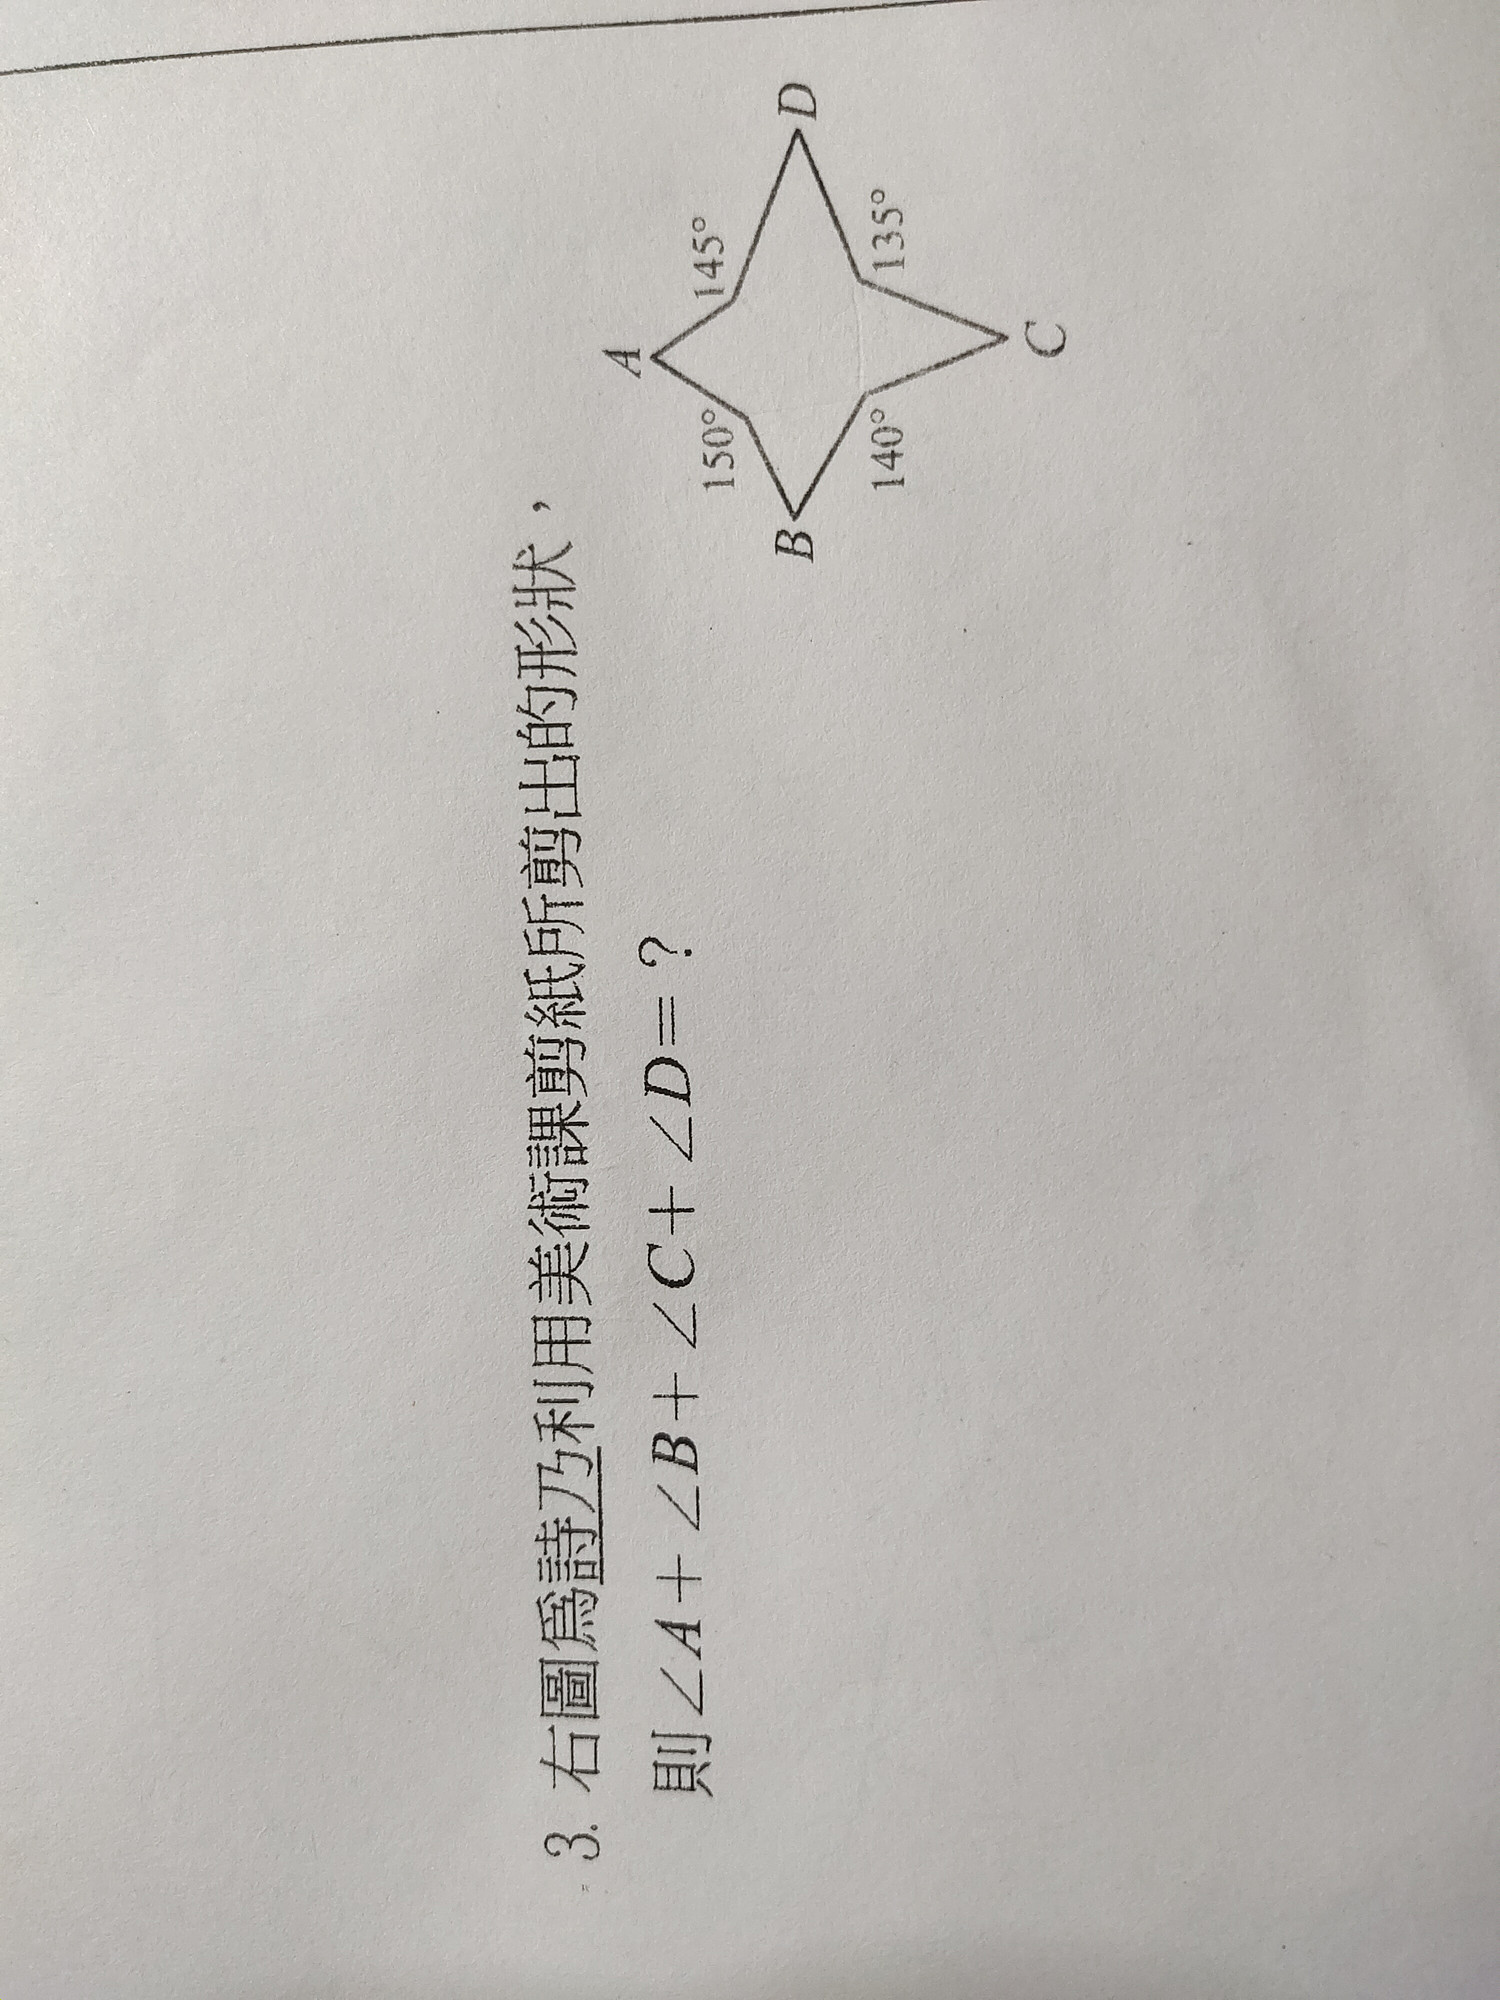 3. 右圖爲詩乃利用美術課剪紙所剪出的形狀，
則∠A+∠B+∠C+∠D=?
A
150°
145°
B
D
140°
135°
C